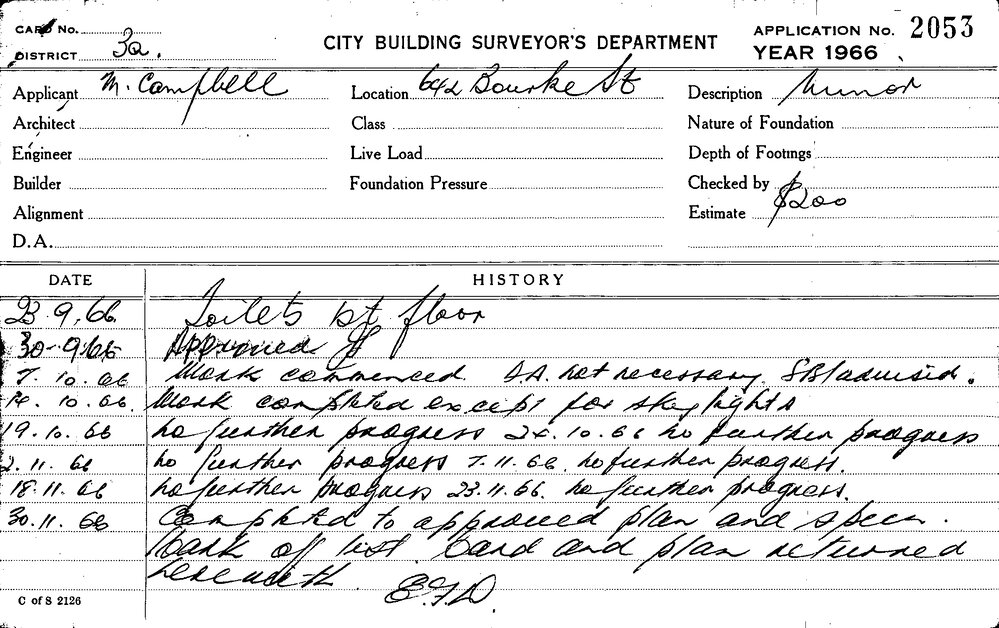 CARD No. APPLICATION No. 2053
DISTRICT 3a. CITY BUILDING SURVEYOR'S DEPARTMENT YEAR 1966
Applicant M. Campbell Location 642 Bourke St Description Minor
Architect Class Nature of Foundation
Engineer Live Load Depth of Footings
Builder Foundation Pressure Checked by
Alignment Estimate $200
D.A.
DATE HISTORY
23.9.66 Toilets 1st floor
30.9.66 Approved
7.10.66 Work commenced. D.A. not necessary. advised.
10.66. Work completed except for skylights
19.10.66 no further progress 24.10.66 no further progress
2.11.66 no further progress 7.11.66. no further progress.
18.11.66 no further progress 23.11.66. no further progress.
30.11.66 Completed to approved plan and specn.
Mark off list Card and plan returned
herewith E.F.D.
C of S 2126